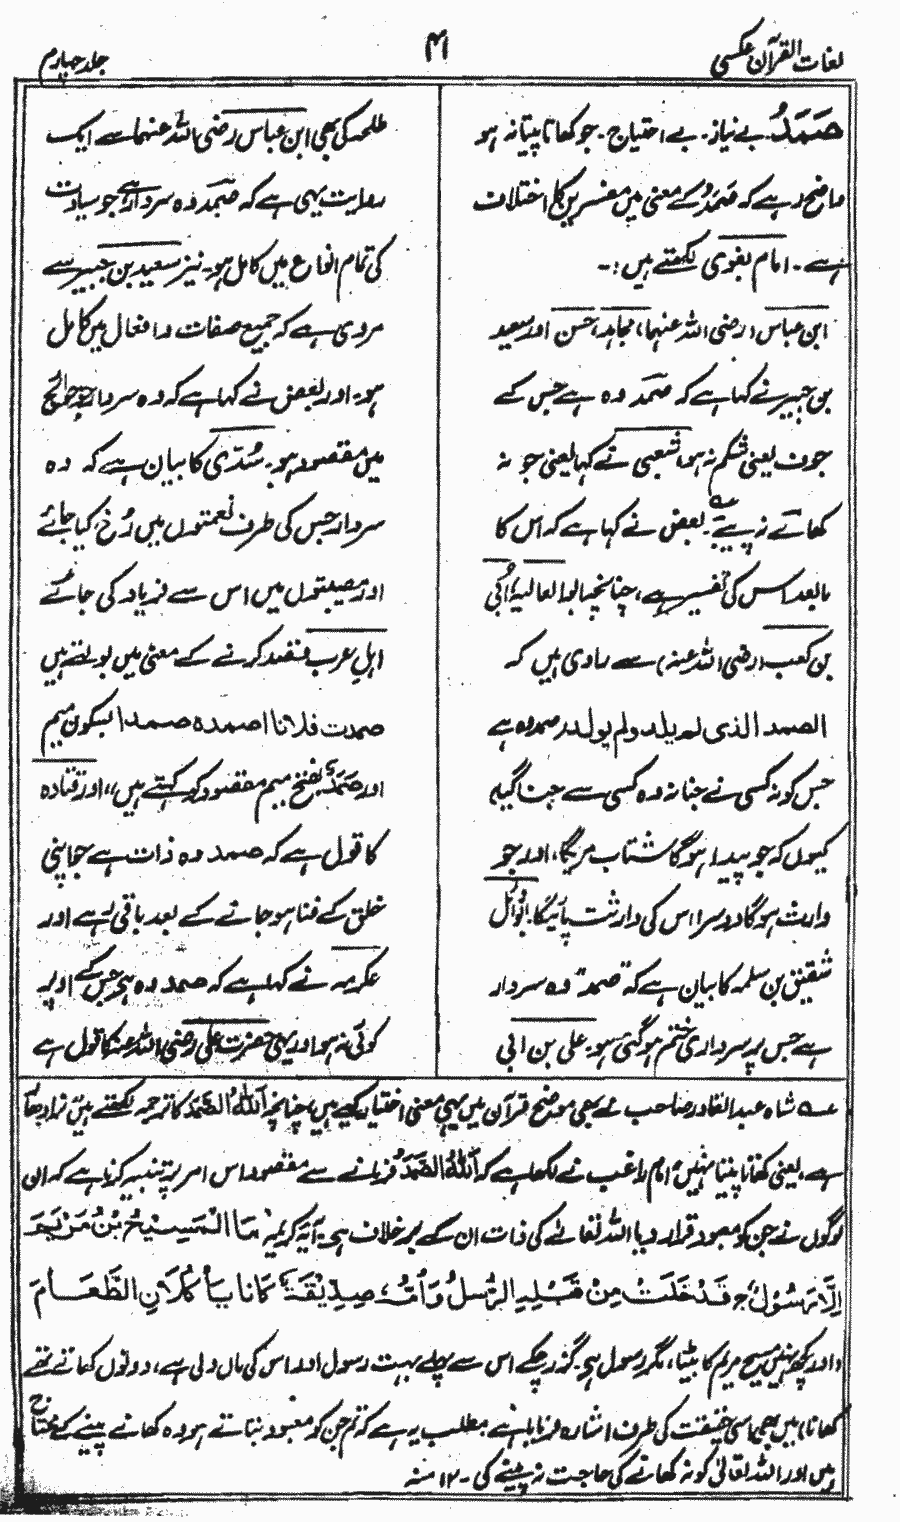 لغات القرآن عکسی
۴۱
جلد چہارم
صَمَدٌ بے نیاز۔ بے احتیاج۔ جو کھاتا پیتا نہ ہو
واضح رہے کہ صَمَدٌ کے معنی میں مفسرین کا اختلاف
ہے۔ امام بغوی لکھتے ہیں:۔
ابن عباس (رضی اللہ عنہما)، مجاہد، حسن اور سعید
بن جبیر نے کہا ہے کہ صمد وہ ہے جس کے
جوف یعنی شکم نہ ہو، شعبی نے کہا یعنی جو نہ
کھائے نہ پیے۔ بعض نے کہا ہے کہ اس کا
مابعد اس کی تفسیر ہے، چنانچہ ابوالعالیہ اُبَیّ
بن کعب (رضی اللہ عنہ) سے راوی ہیں کہ
الصمد الذی لم یلد ولم یولد صمد وہ ہے
جس کو نہ کسی نے جنا نہ وہ کسی سے جنا گیا،
کیوں کہ جو پیدا ہوگا شتاب مریگا، اور جو
وارث ہوگا دوسرا اس کی وارثت پائیگا۔ ابووائل
شقیق بن سلمہ کا بیان ہے کہ "صمد" وہ سردار
ہے جس پر سرداری ختم ہوگئی ہو۔ علی بن ابی
طلحہ کی بھی ابن عباس رضی اللہ عنہما سے ایک
روایت یہی ہے کہ صمد وہ سردار ہے جو سیادت
کی تمام انواع میں کامل ہو۔ نیز سعید بن جبیر سے
مروی ہے کہ جمیع صفات و افعال میں کامل
ہو۔ اور بعض نے کہا ہے کہ وہ سردار جو حوائج
میں مقصود ہو۔ سُدّی کا بیان ہے کہ وہ
سردار جس کی طرف نعمتوں میں رُخ کیا جائے
اور مصیبتوں میں اس سے فریاد کی جائے
اہلِ عرب قصد کرنے کے معنی میں بولتے ہیں
صمدت فلانا اصمدہ صمدا بسکون میم
اور صَمَدٌ بفتح میم مقصود کو کہتے ہیں،، اور قتادہ
کا قول ہے کہ صمد وہ ذات ہے جو اپنی
خلق کے فنا ہو جانے کے بعد باقی رہے اور
عکرمہ نے کہا ہے کہ صمد وہ ہے جس کے اوپر
کوئی نہ ہو اور یہی حضرت علی رضی اللہ عنہ کا قول ہے
شاہ عبدالقادر صاحب نے بھی موضح قرآن میں یہی معنی اختیار کیے ہیں، چنانچہ اَللّٰهُ الصَّمَدُ کا ترجمہ لکھتے ہیں نرادھار
ہے، یعنی کھاتا پیتا نہیں، امام راغب نے لکھا ہے کہ اَللّٰهُ الصَّمَدُ فرمانے سے مقصود اس امر پر تنبیہ کرنا ہے کہ ان
لوگوں نے جن کو معبود قرار دیا اللہ تعالیٰ کی ذات ان کے برخلاف ہے۔ آیۃ کریمہ مَا الْمَسِيْحُ بْنُ مَرْيَمَ
اِلَّا رَسُوْلٌ ج قَدْ خَلَتْ مِنْ قَبْلِهِ الرُّسُلُ وَاُمُّهُ صِدِّيْقَةٌ كَانَا يَأْكُلَانِ الطَّعَامَ
(اور کچھ نہیں مسیح مریم کا بیٹا، مگر رسول ہے۔ گزر چکے اس سے پہلے بہت رسول اور اس کی ماں ولی ہے، دونوں کھاتے تھے
کھانا) میں بھی اسی حقیقت کی طرف اشارہ فرمایا ہے مطلب یہ ہے کہ تم جن کو معبود بناتے ہو وہ کھانے پینے کے محتاج
ہیں اور اللہ تعالیٰ کو نہ کھانے کی حاجت نہ پینے کی۔ ۱۲ منہ